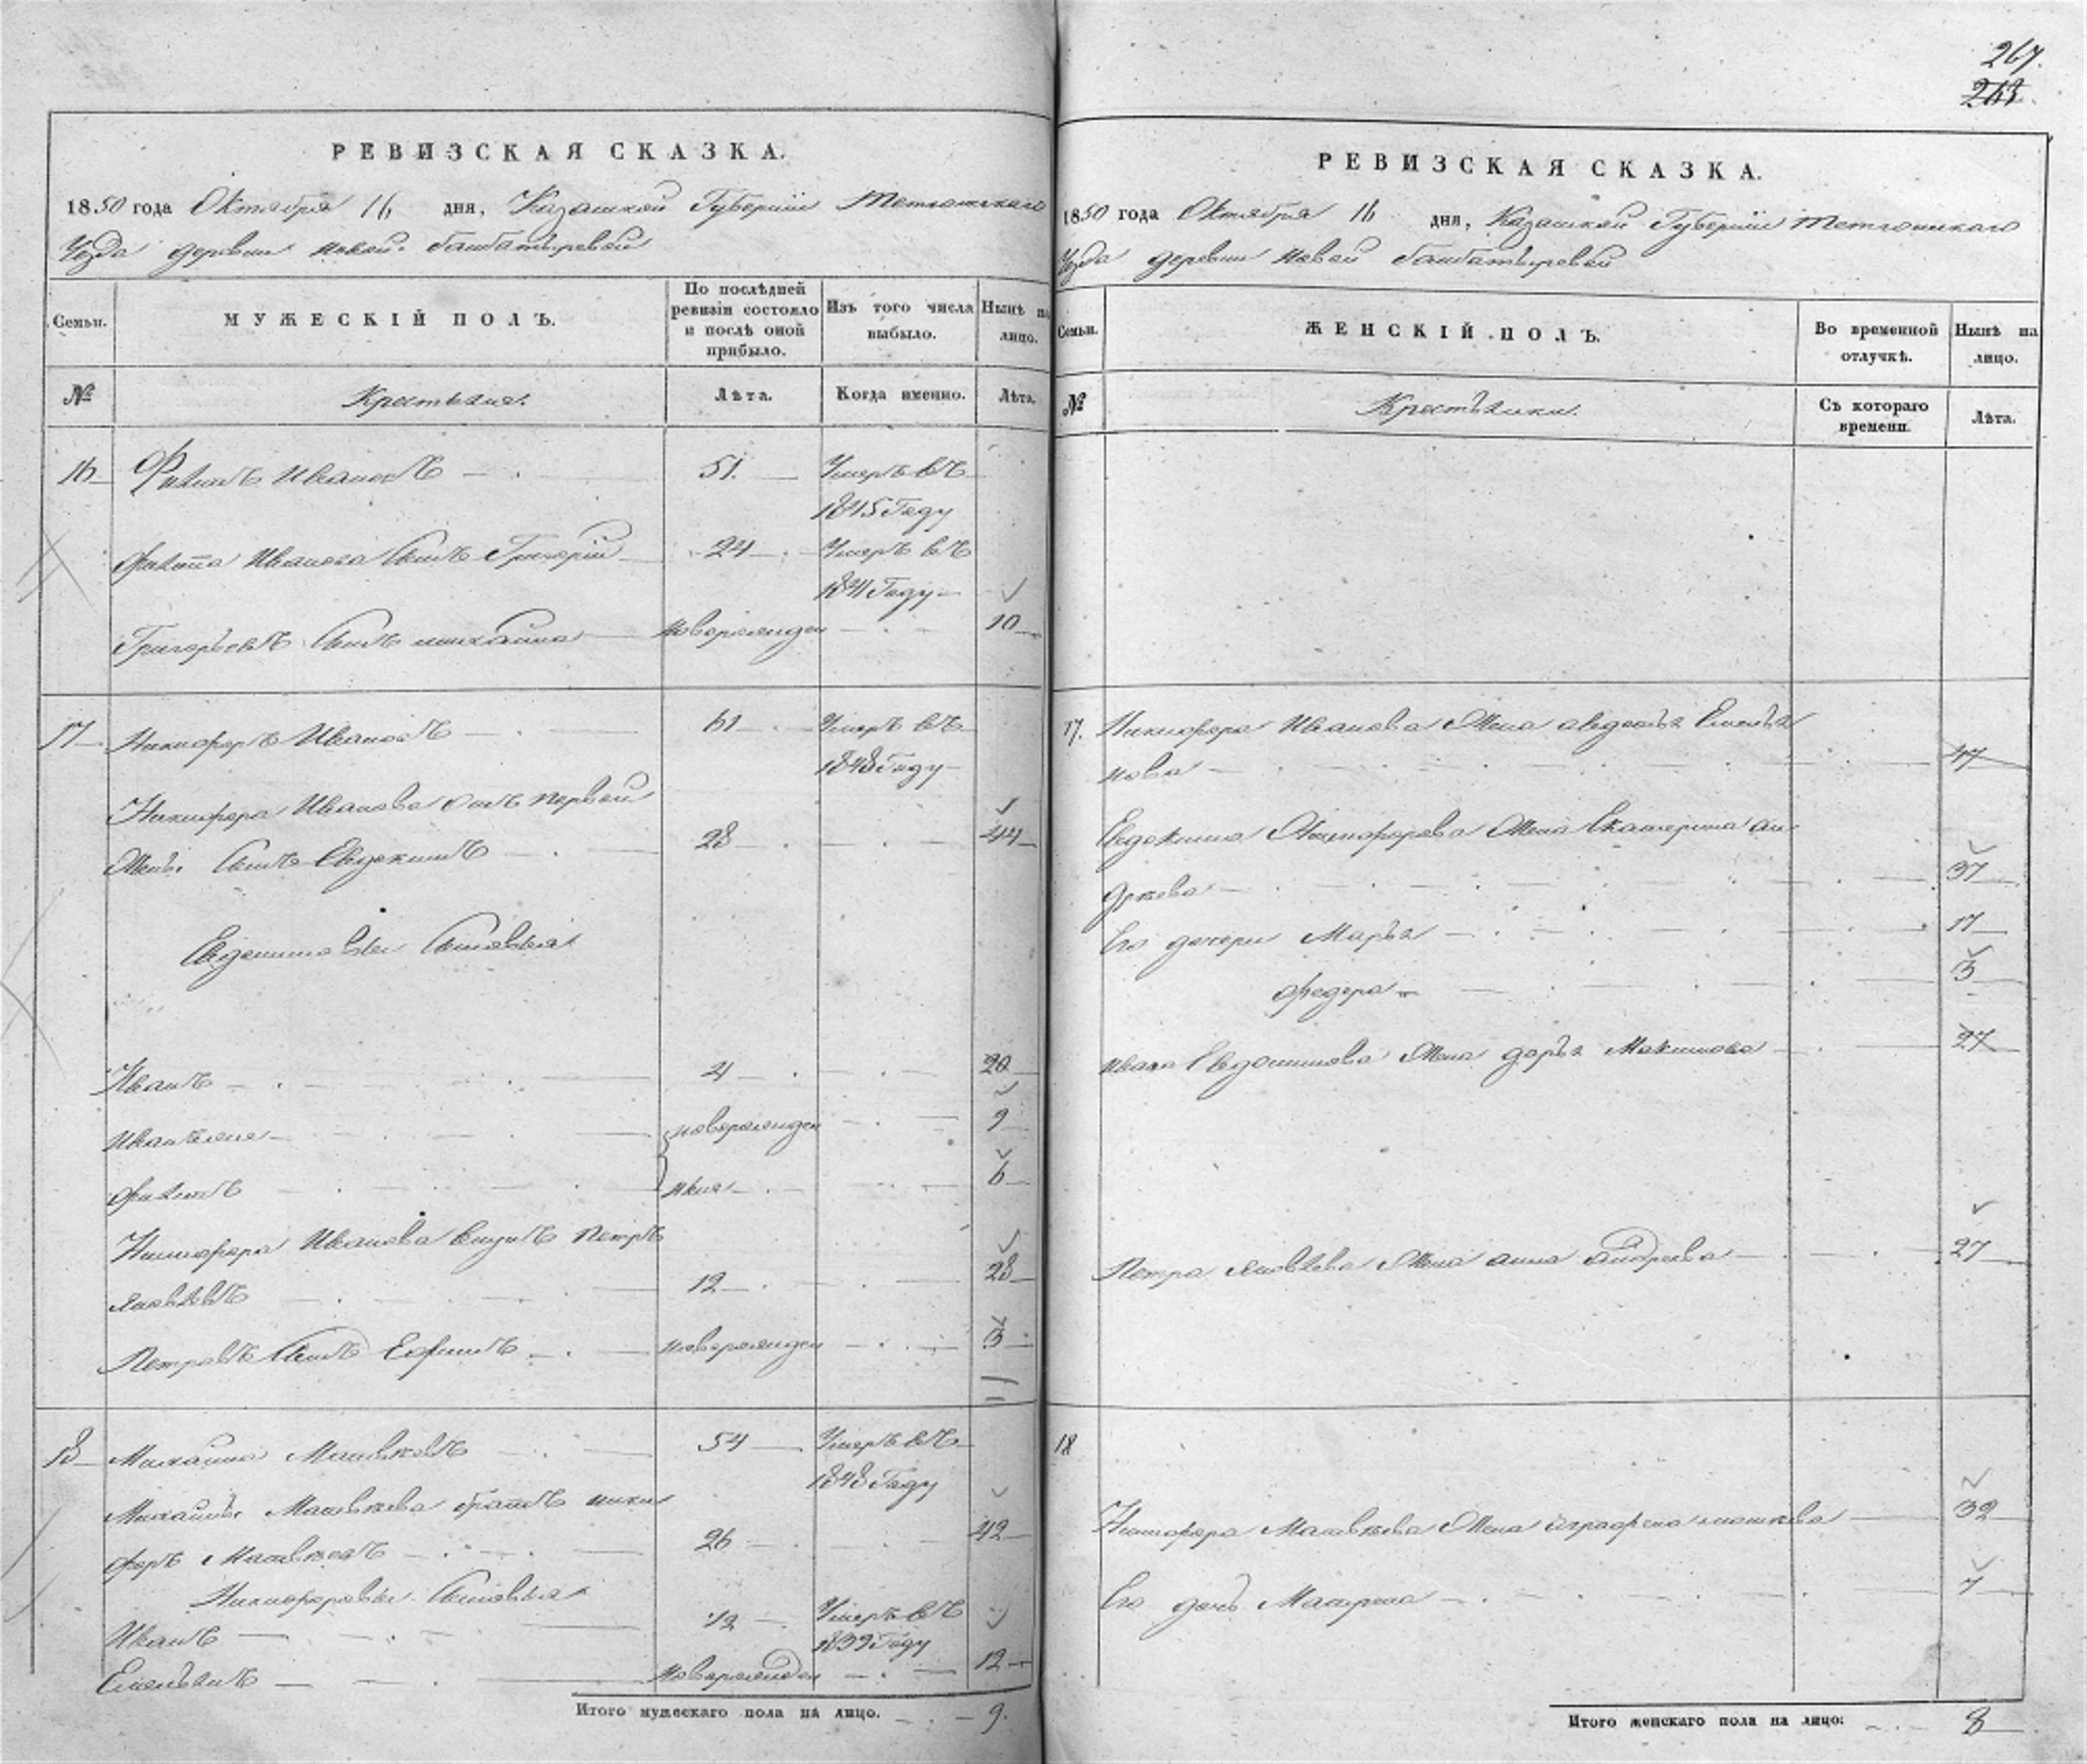 267.
263.
РЕВИЗСКАЯ СКАЗКА.
1850 года Октября 16 дня, Казанской Губернiи Тетюшскаго
Уезда деревни Новой Баибатыревой
Семьи.
МУЖЕСКIЙ ПОЛЪ.
По послѣдней ревизiи состояло и послѣ оной прибыло.
Изъ того числа выбыло.
Нынѣ на лицо.
№
Крестьяне.
Лѣта.
Когда именно.
Лѣта.
16 Филипъ Ивановъ 51. Умеръ въ
1845 Году
Филипа Иванова Сынъ Григорiй 24 Умеръ въ
1841 Году
Григорьевъ Сынъ Михайла новорожден 10
17 Никифоръ Ивановъ 61 Умеръ въ
1848 Году
Никифора Иванова отъ первой
Жены Сынъ Евдокимъ 28 44
Евдокимовы Сыновья
Иванъ 4 20
Иванъ новорожден 9
Филипъ ные 6
Никифора Иванова внукъ Петръ
Яковлевъ 12 28
Петровъ Сынъ Ефимъ новорожден 3
18 Михайла Матвѣевъ 54 Умеръ въ
1848 Году
Михайлы Матвѣева братъ Ники
форъ Матвѣевъ 26 42
Никифоровы Сыновья
Иванъ 12 Умеръ въ
1839 Году
Емельянъ новорожден 12
Итого мужескаго пола на лицо. 9.
РЕВИЗСКАЯ СКАЗКА.
1850 года Октября 16 дня, Казанской Губернiи Тетюшскаго
Уезда деревни Новой Баибатыревой
Семьи.
ЖЕНСКIЙ ПОЛЪ.
Во временной отлучкѣ.
Нынѣ на лицо.
№
Крестьянки.
Съ котораго времени.
Лѣта.
17. Никифора Иванова Жена Авдотья Емелья
нова 47
Евдокима Никифорова Жена Катерина Ан
дреева 37
Его дочери Марья 17
Федора 3
Ивана Евдокимова Жена Дарья Максимова 27
Петра Яковлева Жена Анна Андреева 27
18
Никифора Матвѣева Жена Аграфена 32
Его дочь Матрена 7
Итого женскаго пола на лицо: 8